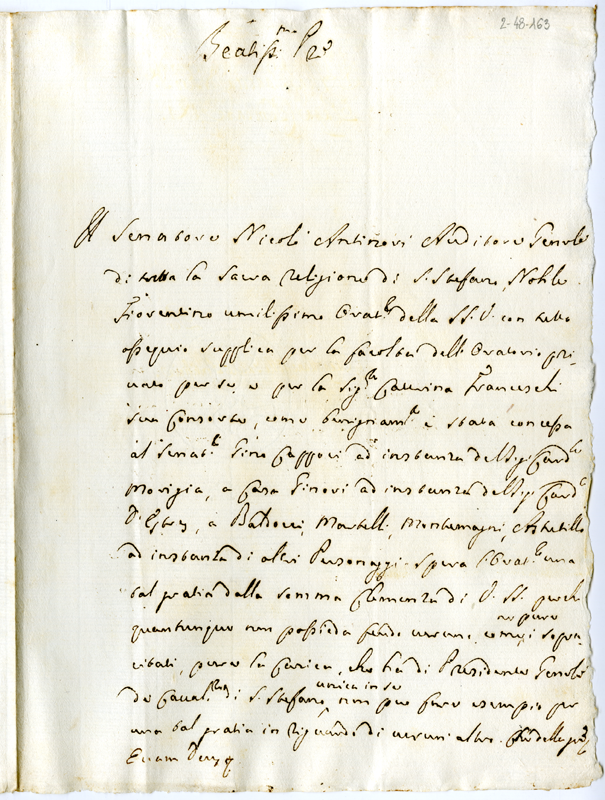 2-48-163
Beatiss.mo P.re
Il Senatore Nicolò Antinori Auditore Genle
di tutta la sacra religione di S. Stefano, Nobile
Fiorentino umilissimo Orat.e della SS. V. con tutto
ossequio supplica per la facoltà dell'Oratorio pri-
vato per se, e per la Sig.ra Catterina Franceschi
sua Consorte, come benignam.te è stata concessa
al Senat.e Gino Capponi ad instanza del Sig. Card.le
Morigia, a Casa Ginori ad instanza del Sig. Card.le
d'Estrez, a Martelli, Montemagni,
ad instanza di altri Personaggi. Spera l'Orat.e una
tal gratia dalla somma Clemenza di V. SS. perche
quantunque non possieda feudo veruno, come ne pure i sopra
citati, pure la carica, che ha di Presidente Genle
de Caval.ri di S. Stefano unica in se, non può fare esempio per
una tal gratia in riguardo di verun altro. Che della
Et am Deus